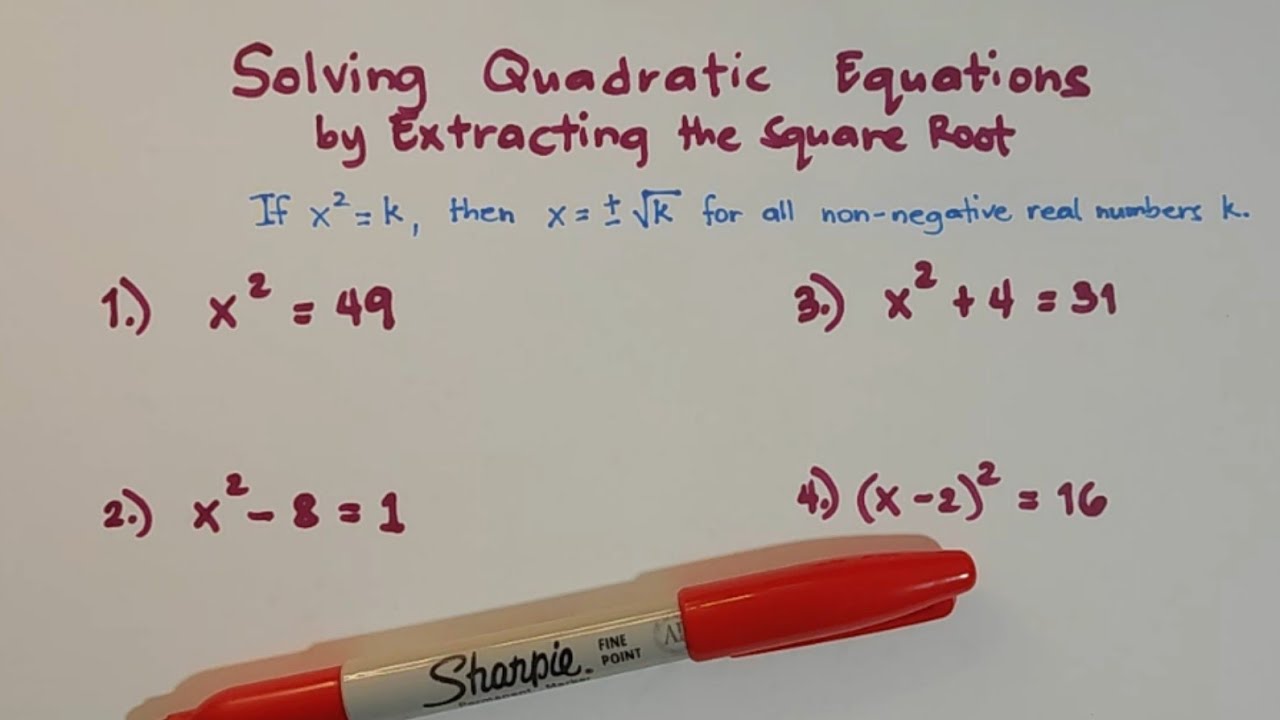 Solving Quadratic Equations
by Extracting the Square Root
If x² = k, then x = ± √k for all non-negative real numbers k.
1.) x² = 49
2.) x² - 8 = 1
3.) x² + 4 = 31
4.) (x - 2)² = 16
Sharpie.
FINE
POINT
Permanent Marker